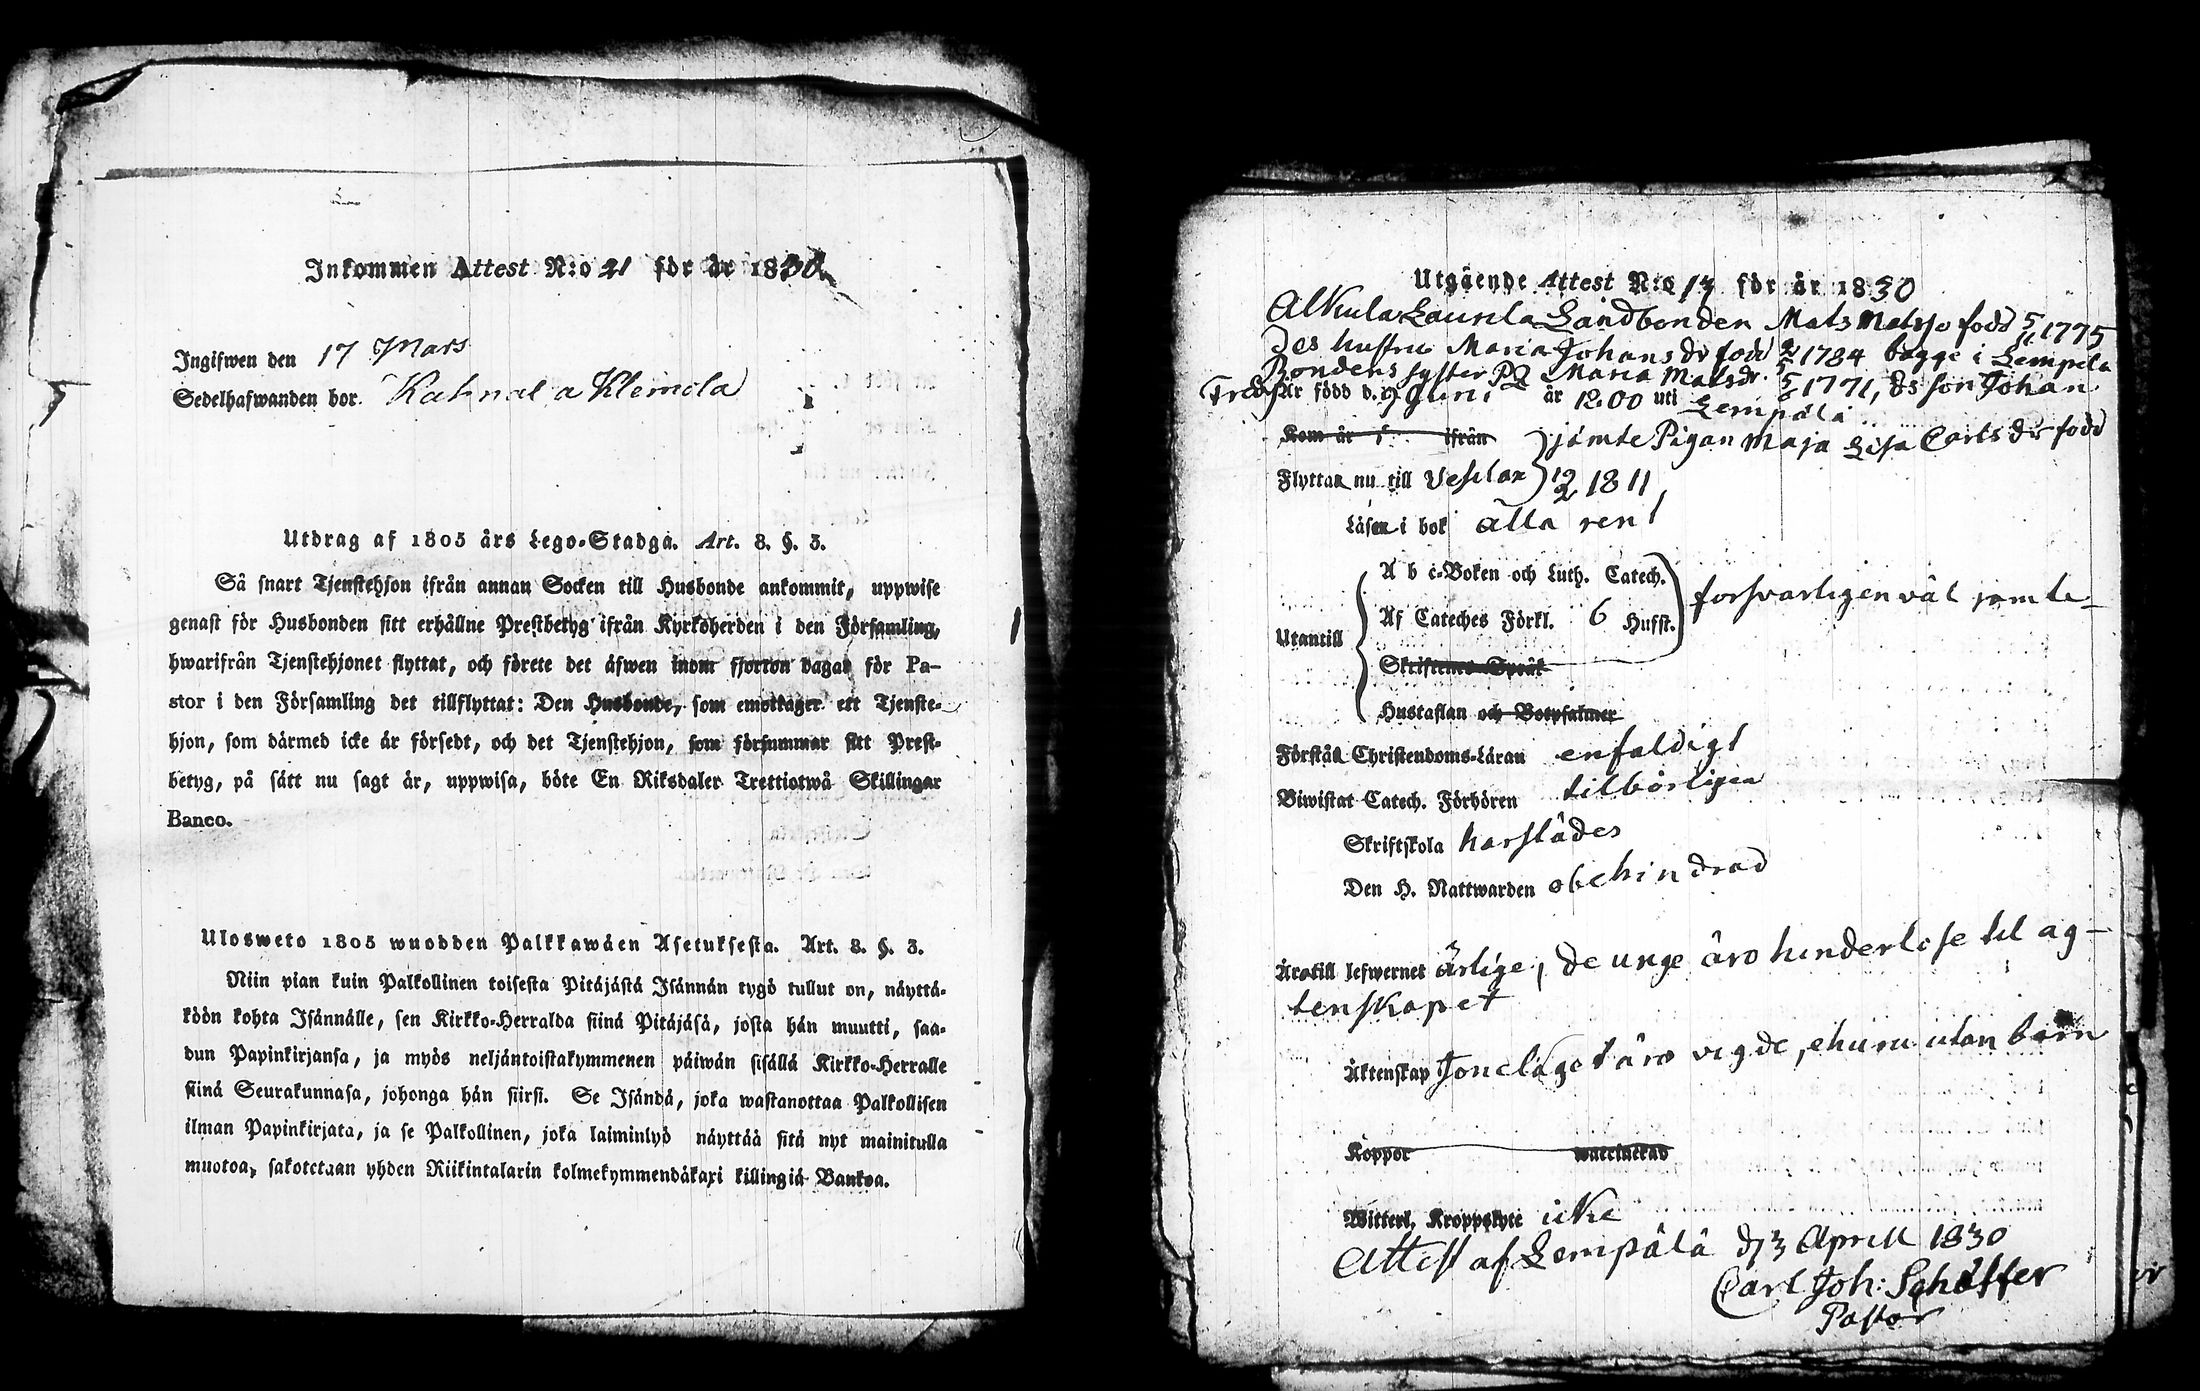 Inkommen Attest N:o 21 för år 1830
Ingifwen den 17 Mars
Sedelhafwanden bor Kahnal a Klemola
Utdrag af 1805 års Lego-Stadga. Art. 8. §. 3.
Så snart Tjenstehjon ifrån annan Socken till Husbonde ankommit, uppwise
genast för Husbonden sitt erhållne Prestbetyg ifrån Kyrkoherden i den Församling,
hwarifrån Tjenstehjonet flyttat, och förete det äfwen inom fjorton dagar för Pa-
stor i den Församling det tillflyttat: Den Husbonde, som emottager ett Tjenste-
hjon, som därmed icke är försedt, och det Tjenstehjon, som försummar sitt Prest-
betyg, på sätt nu sagt är, uppwisa, böte En Riksdaler Trettiotwå Skillingar
Banco.
Ulosweto 1805 wuodden Palkkawäen Asetuksesta. Art. 8. §. 3.
Niin pian kuin Palkollinen toisesta Pitäjästä Isännän tygö tullut on, näyttä-
köön kohta Isännälle, sen Kirkko-Herralda siinä Pitäjäsä, josta hän muutti, saa-
dun Papinkirjansa, ja myös neljäntoistakymmenen päiwän sisällä Kirkko-Herralle
siinä Seurakunnasa, johonga hän siirsi. Se Isändä, joka wastanottaa Palkollisen
ilman Papinkirjata, ja se Palkollinen, joka laiminlyö näyttää sitä nyt mainitulla
muotoa, sakotetaan yhden Riikintalarin kolmekymmendäkaxi killingiä Bankoa.
Utgående Attest N:o 14 för år 1830
Alkula Laurila Landbonden Mats Matsso född 5/ 1775
Des hustru Maria Johans dr född 2/ 1784 bägge i Lempälä
Bondens syster Maria Matsdr. 5/5 1771, ds son Johan
Fred: Är född d. 9 Juni år 1800 uti Lempälä
Kom år ifrån jämte Pigan Maja Lisa Carls dr född
Flyttar nu till Vesilax 12/2 1811,
Läser i bok alla rent
A b c-Boken och Luth. Catech.
Utantill Af Cateches Förkl. 6 Hufst. försvarligen väl jämte
Skriftenes Språk
Hustaflan och Botpsalmer
Förstår Christendoms-Läran enfaldigt
Biwistat Catech. Förhören tilbörligen
Skriftskola härstädes
Den H. Nattwarden obehindrad
Är till lefwernet ärlige, de unge äro hinderlöse til äg-
tenskapet
Äktenskap äro vigde, ehuru utan barn
Koppor waccinerad
Witterl. Kroppslyte icke
Attest af Lempälä d. 3 April 1830
Carl Joh: Schäffer
Pastor